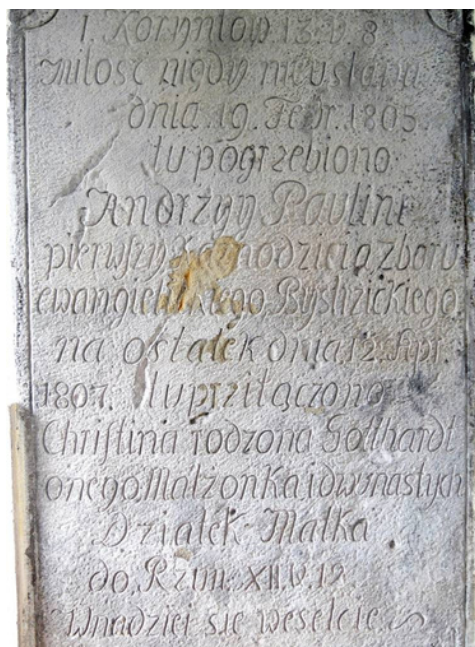 I. Koryntow 13. v. 8
Milosc nigdy nieustawa
dnia .19. Febr. 1805.
tu pogrzebiono
Andrzyy Paulini
pierwszy zboru
ewangielickiego Bystrzickiego
na ostatek dnia 12. Apr.
1807. tu prziłączono
Christina rodzona Gotthardt
onego Matzonka i dwunastych
Dziatek Matka
do. Rzim. XII. v. 12
Wnadziei się weselcie